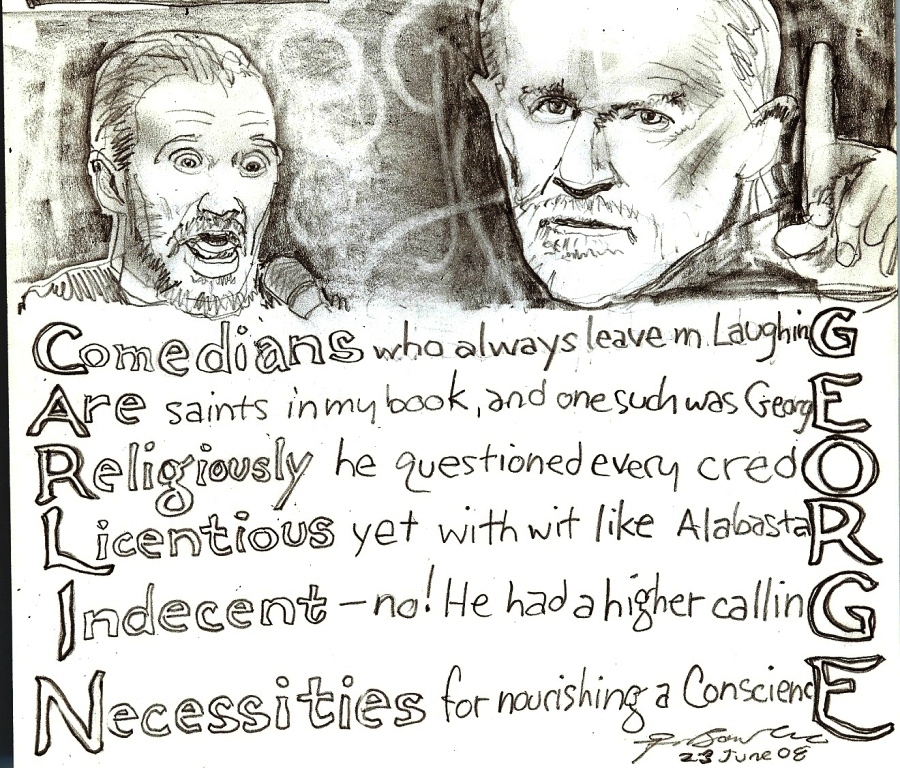 Comedians who always leave m LaughinG
Are saints in my book, and one such was GeorgE
Religiously he questioned every credO
Licentious yet with wit like AlabastaR
Indecent – no! He had a higher callinG
Necessities for nourishing a ConsciencE
23 June 08